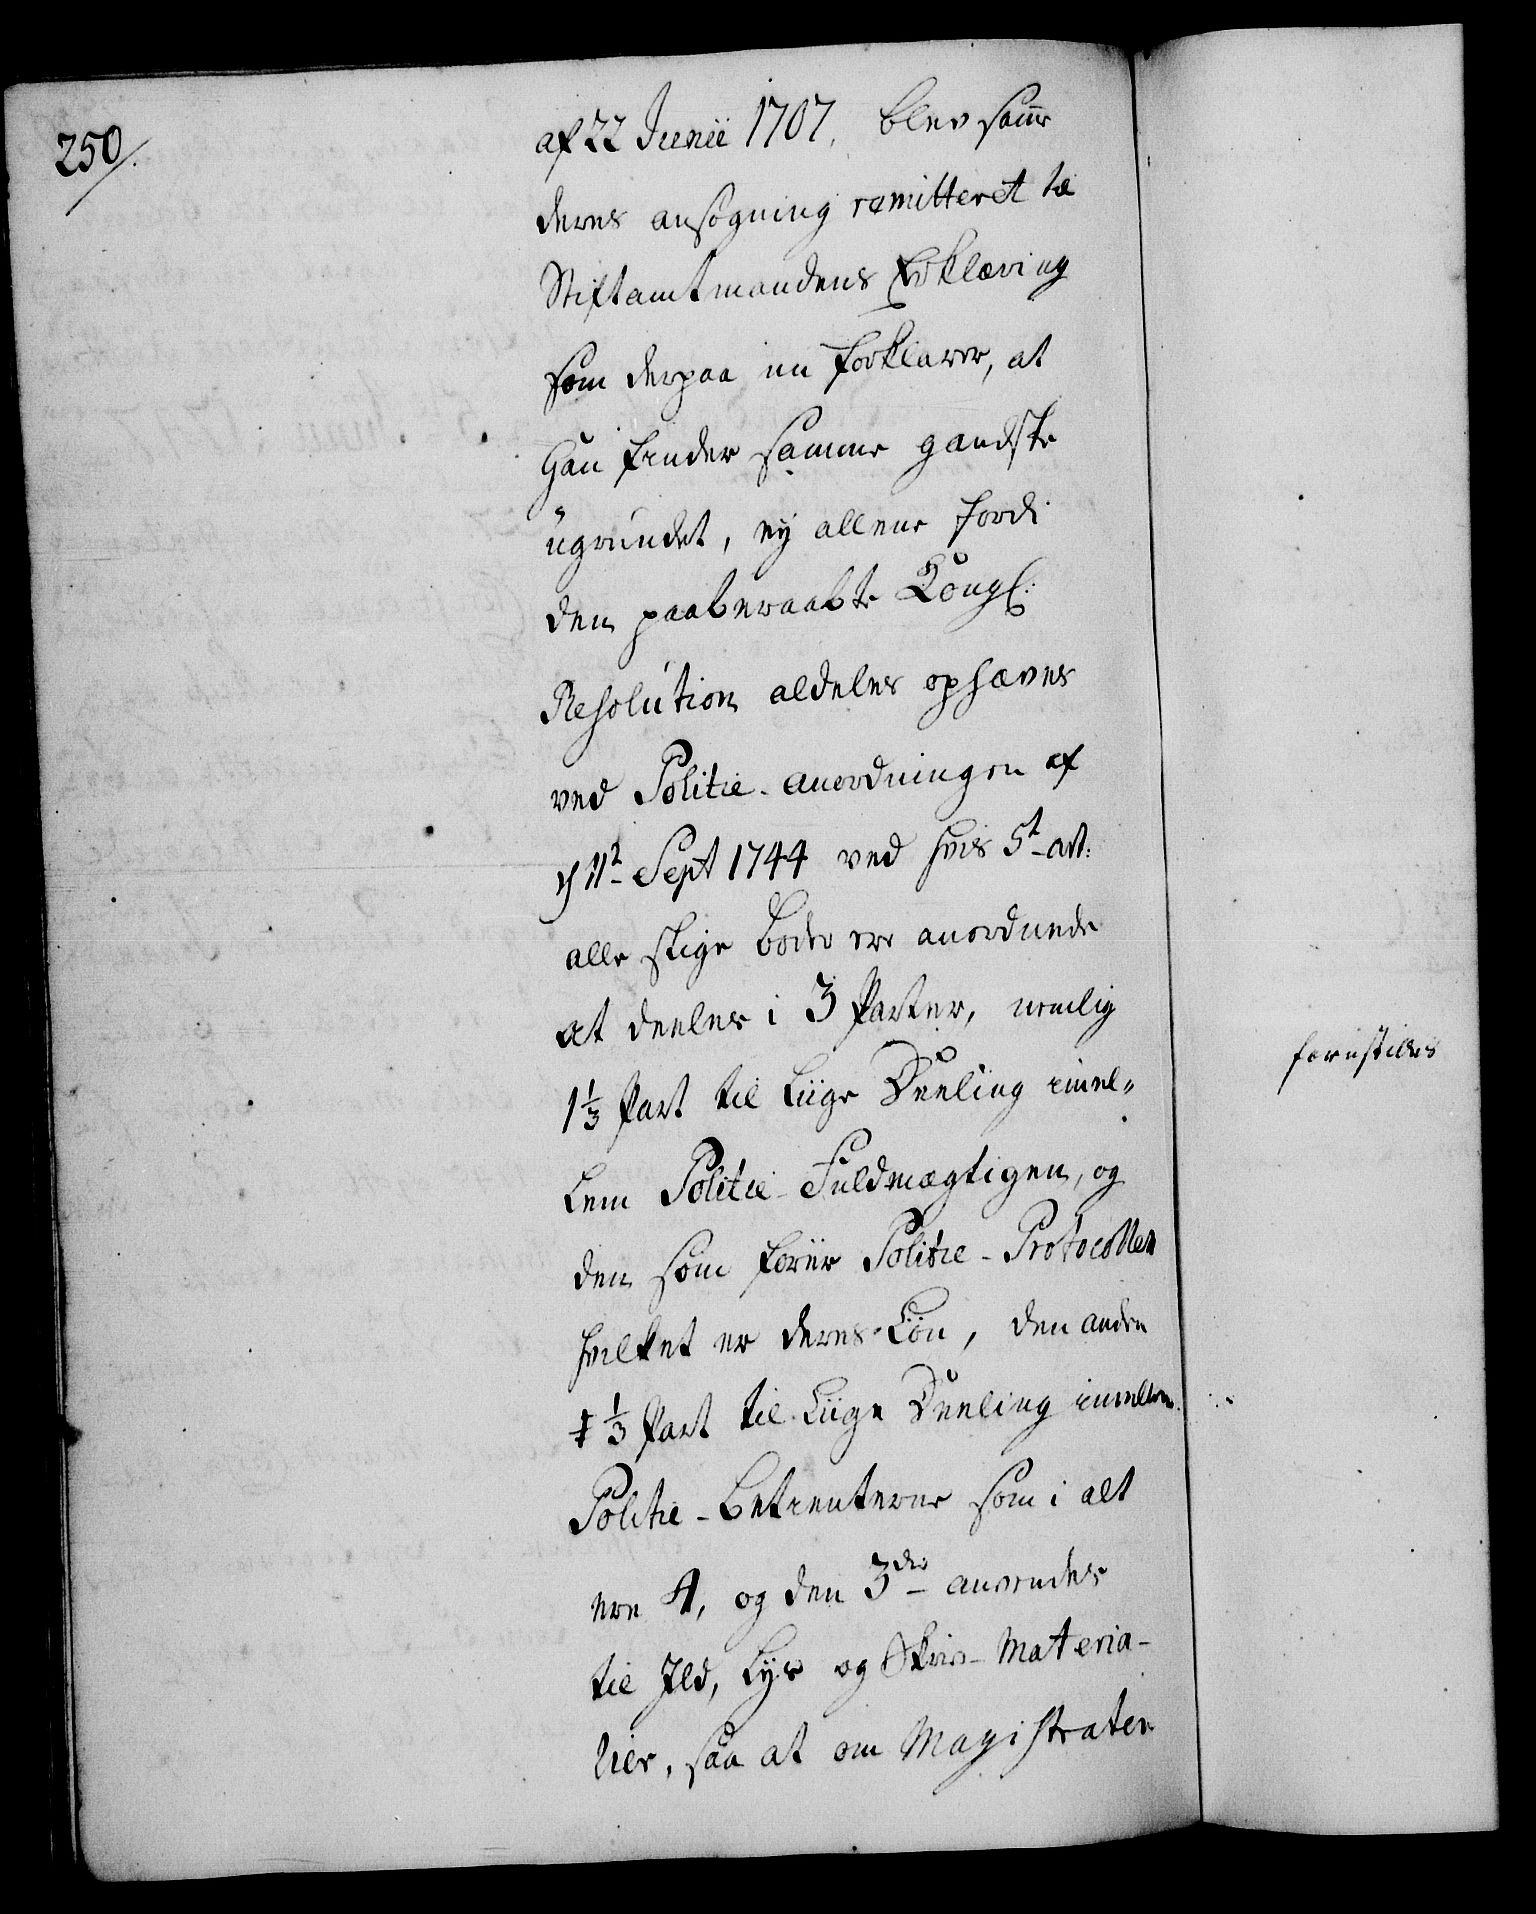 250/.
af 22 Junii 1707. blev samme
deres ansøgning remitteret til
Stiftamtmandens Erklæring
som derpaa nu forklarer, at
Han finder samme gandske
ugrundet, ey allene fordi
den paaberaabte Kongl:
Resolution aldeles ophæves
ved Politie-anordningen af
11te Sept 1744 ved hvis 5t art:
alle slige bøder ere anordnede
at deeles i 3 Parter, nemlig
1 1/3 Part til Liige Deeling imel-
lem Politie-Fuldmægtigen, og
den som fører Politie-Protocollen
hvilket er deres Løn, den anden
1/3 Part til Liige Deeling imellem
Politie-Betienterne som i alt
ere 4, og den 3die anvendes
til Ild, Lys og Skriv-Materia-
lier, saa at om Magistraten
forestilles